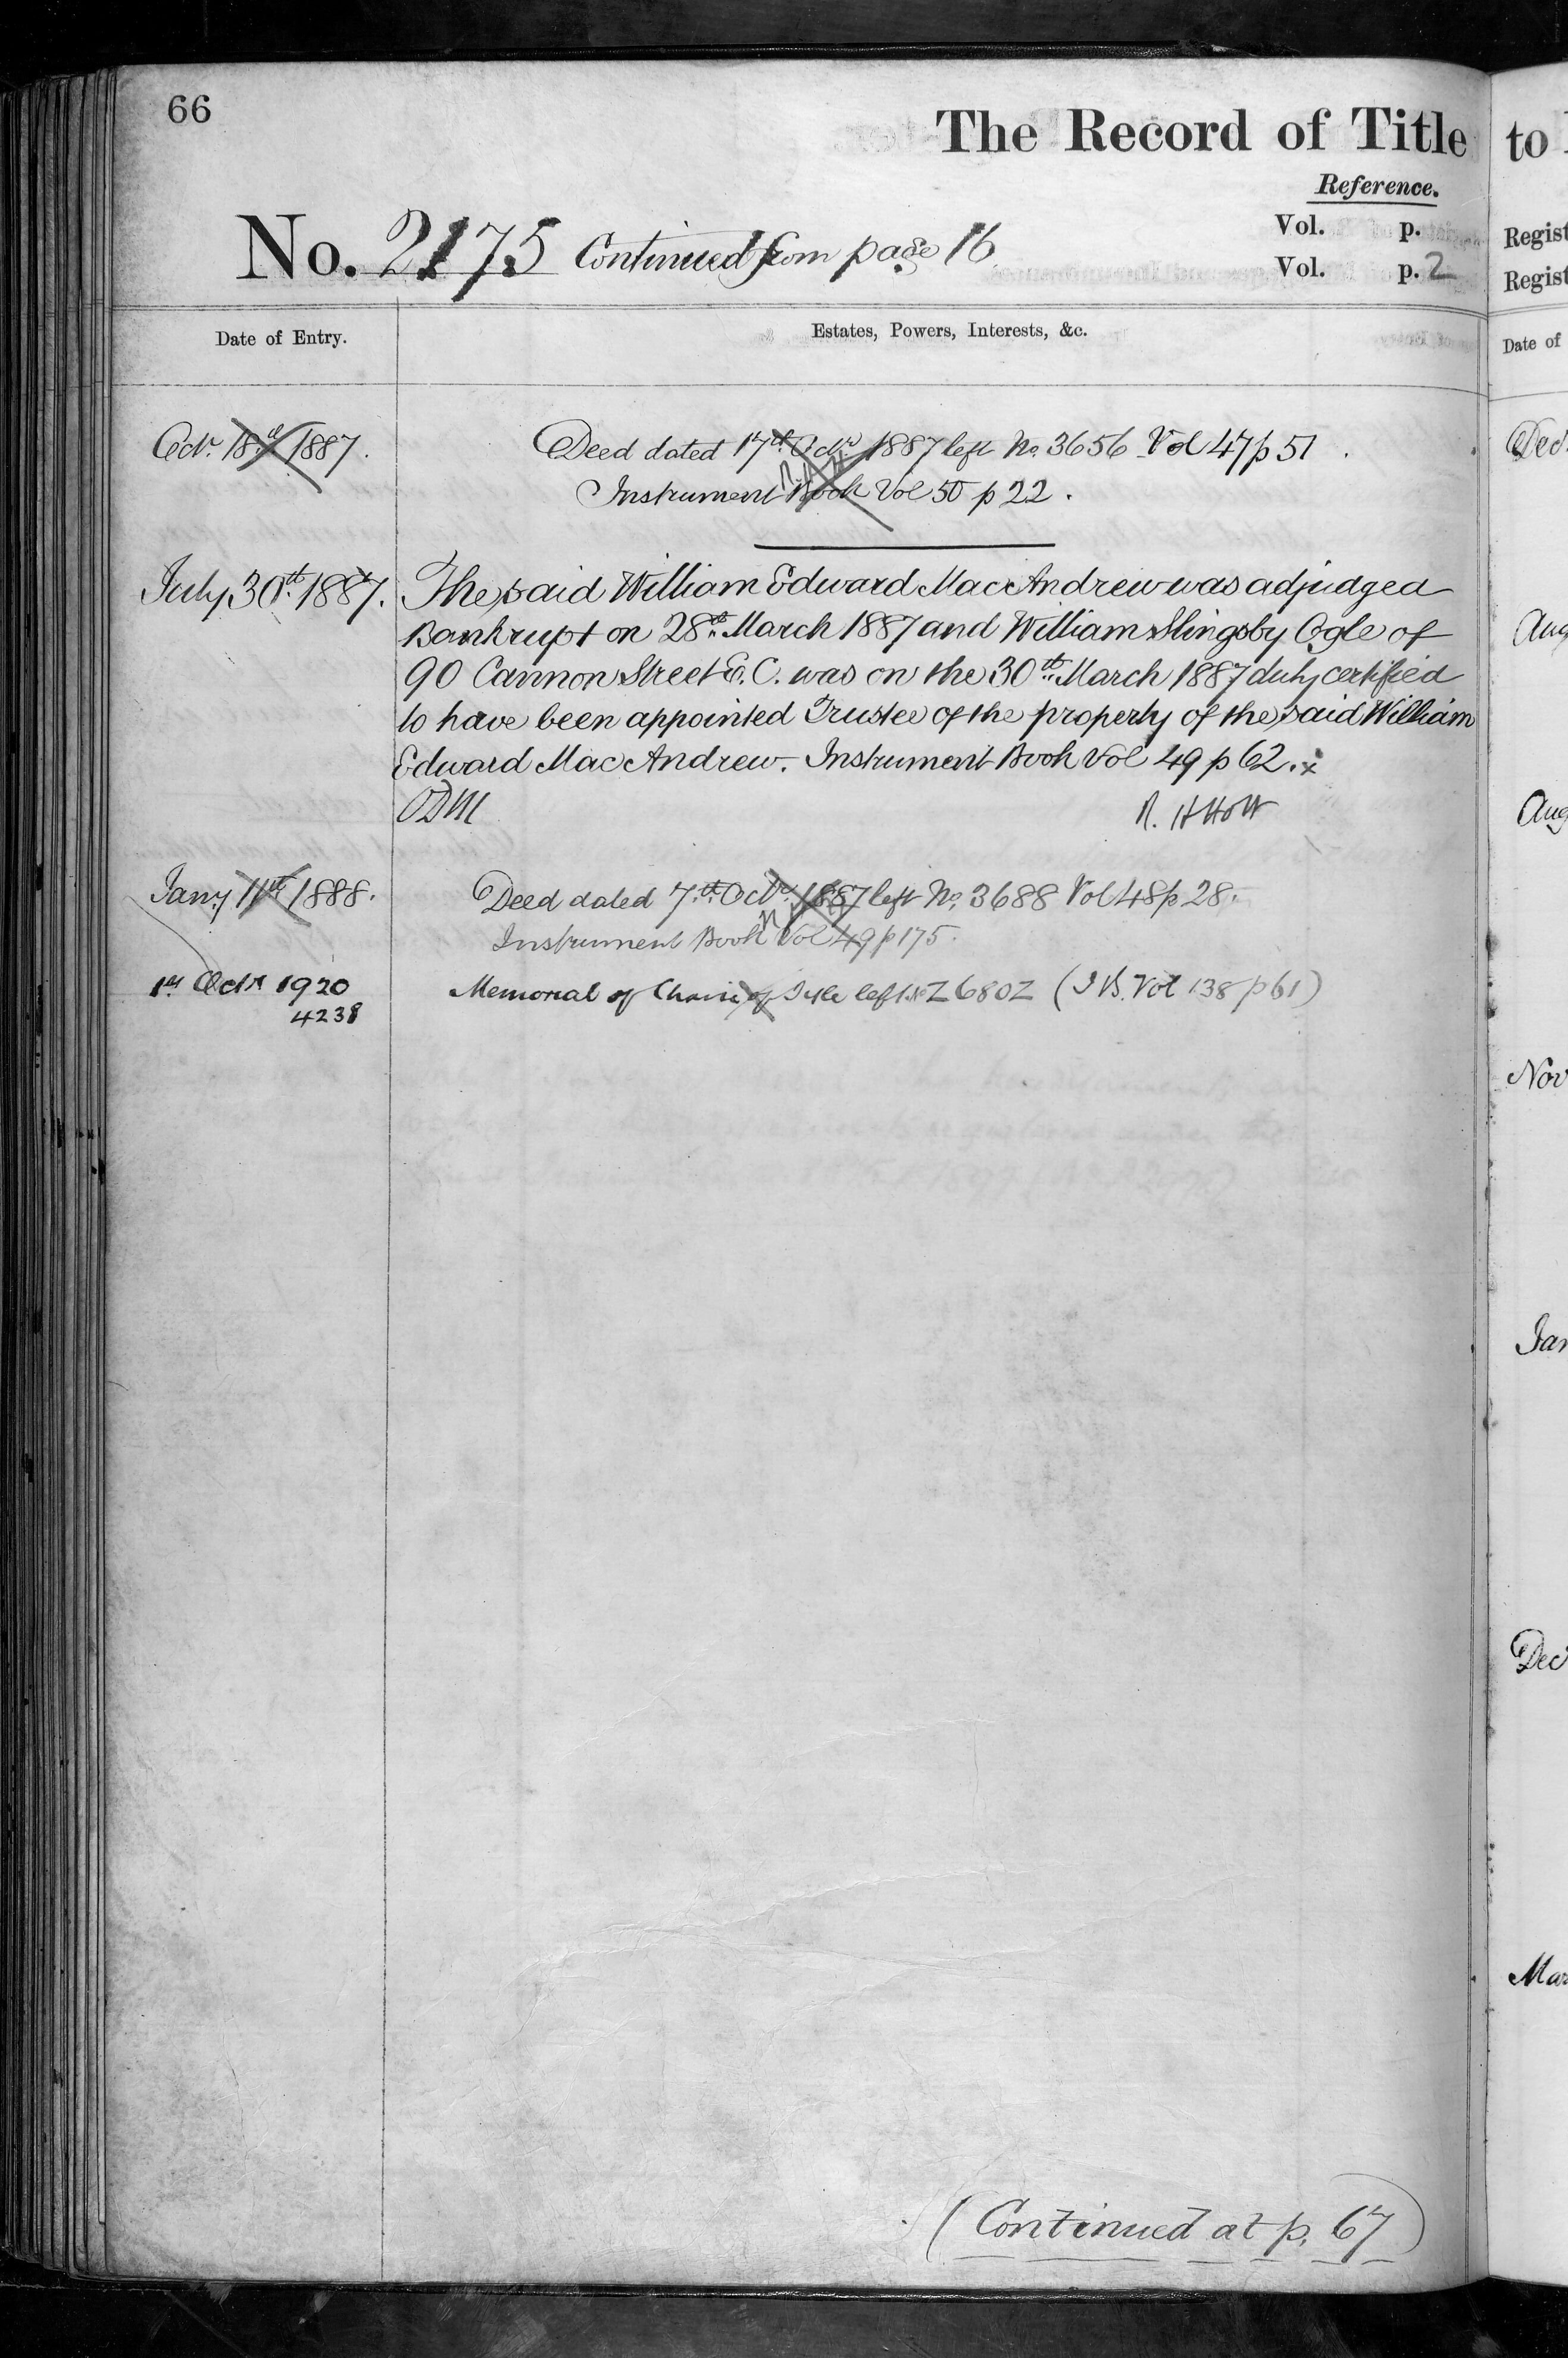 66
The Record of Title
to
Reference.
Vol. p.
Vol. p. 2
No. 2175 Continued from page 16
Regist
Regist
Date of Entry.
Estates, Powers, Interests, &c.
Date of
Octr. 18th 1887.
Deed dated 17th Octr. 1887 left No. 3656 Vol 47 p 51.
Instrument Book Vol 50 p 22.
Dec.
July 30th 1887.
The said William Edward MacAndrew was adjudged
Bankrupt on 28th March 1887 and William Slingsby Ogle of
90 Cannon Street E.C. was on the 30th March 1887 duly certified
to have been appointed Trustee of the property of the said William
Edward MacAndrew. Instrument Book Vol 49 p 62. x
ODM
R. H Holt
Aug
Aug
Jany. 11th 1888.
Deed dated 7th Octr. 1887 left No. 3688 Vol 48 p 28.
Instrument Book Vol 49 p 175.
1st Octr 1920
4238
Memorial of Title left No Z680Z (I B. Vol 138 p 61)
Nov
Jan
Dec
Mar
(Continued at p. 67)